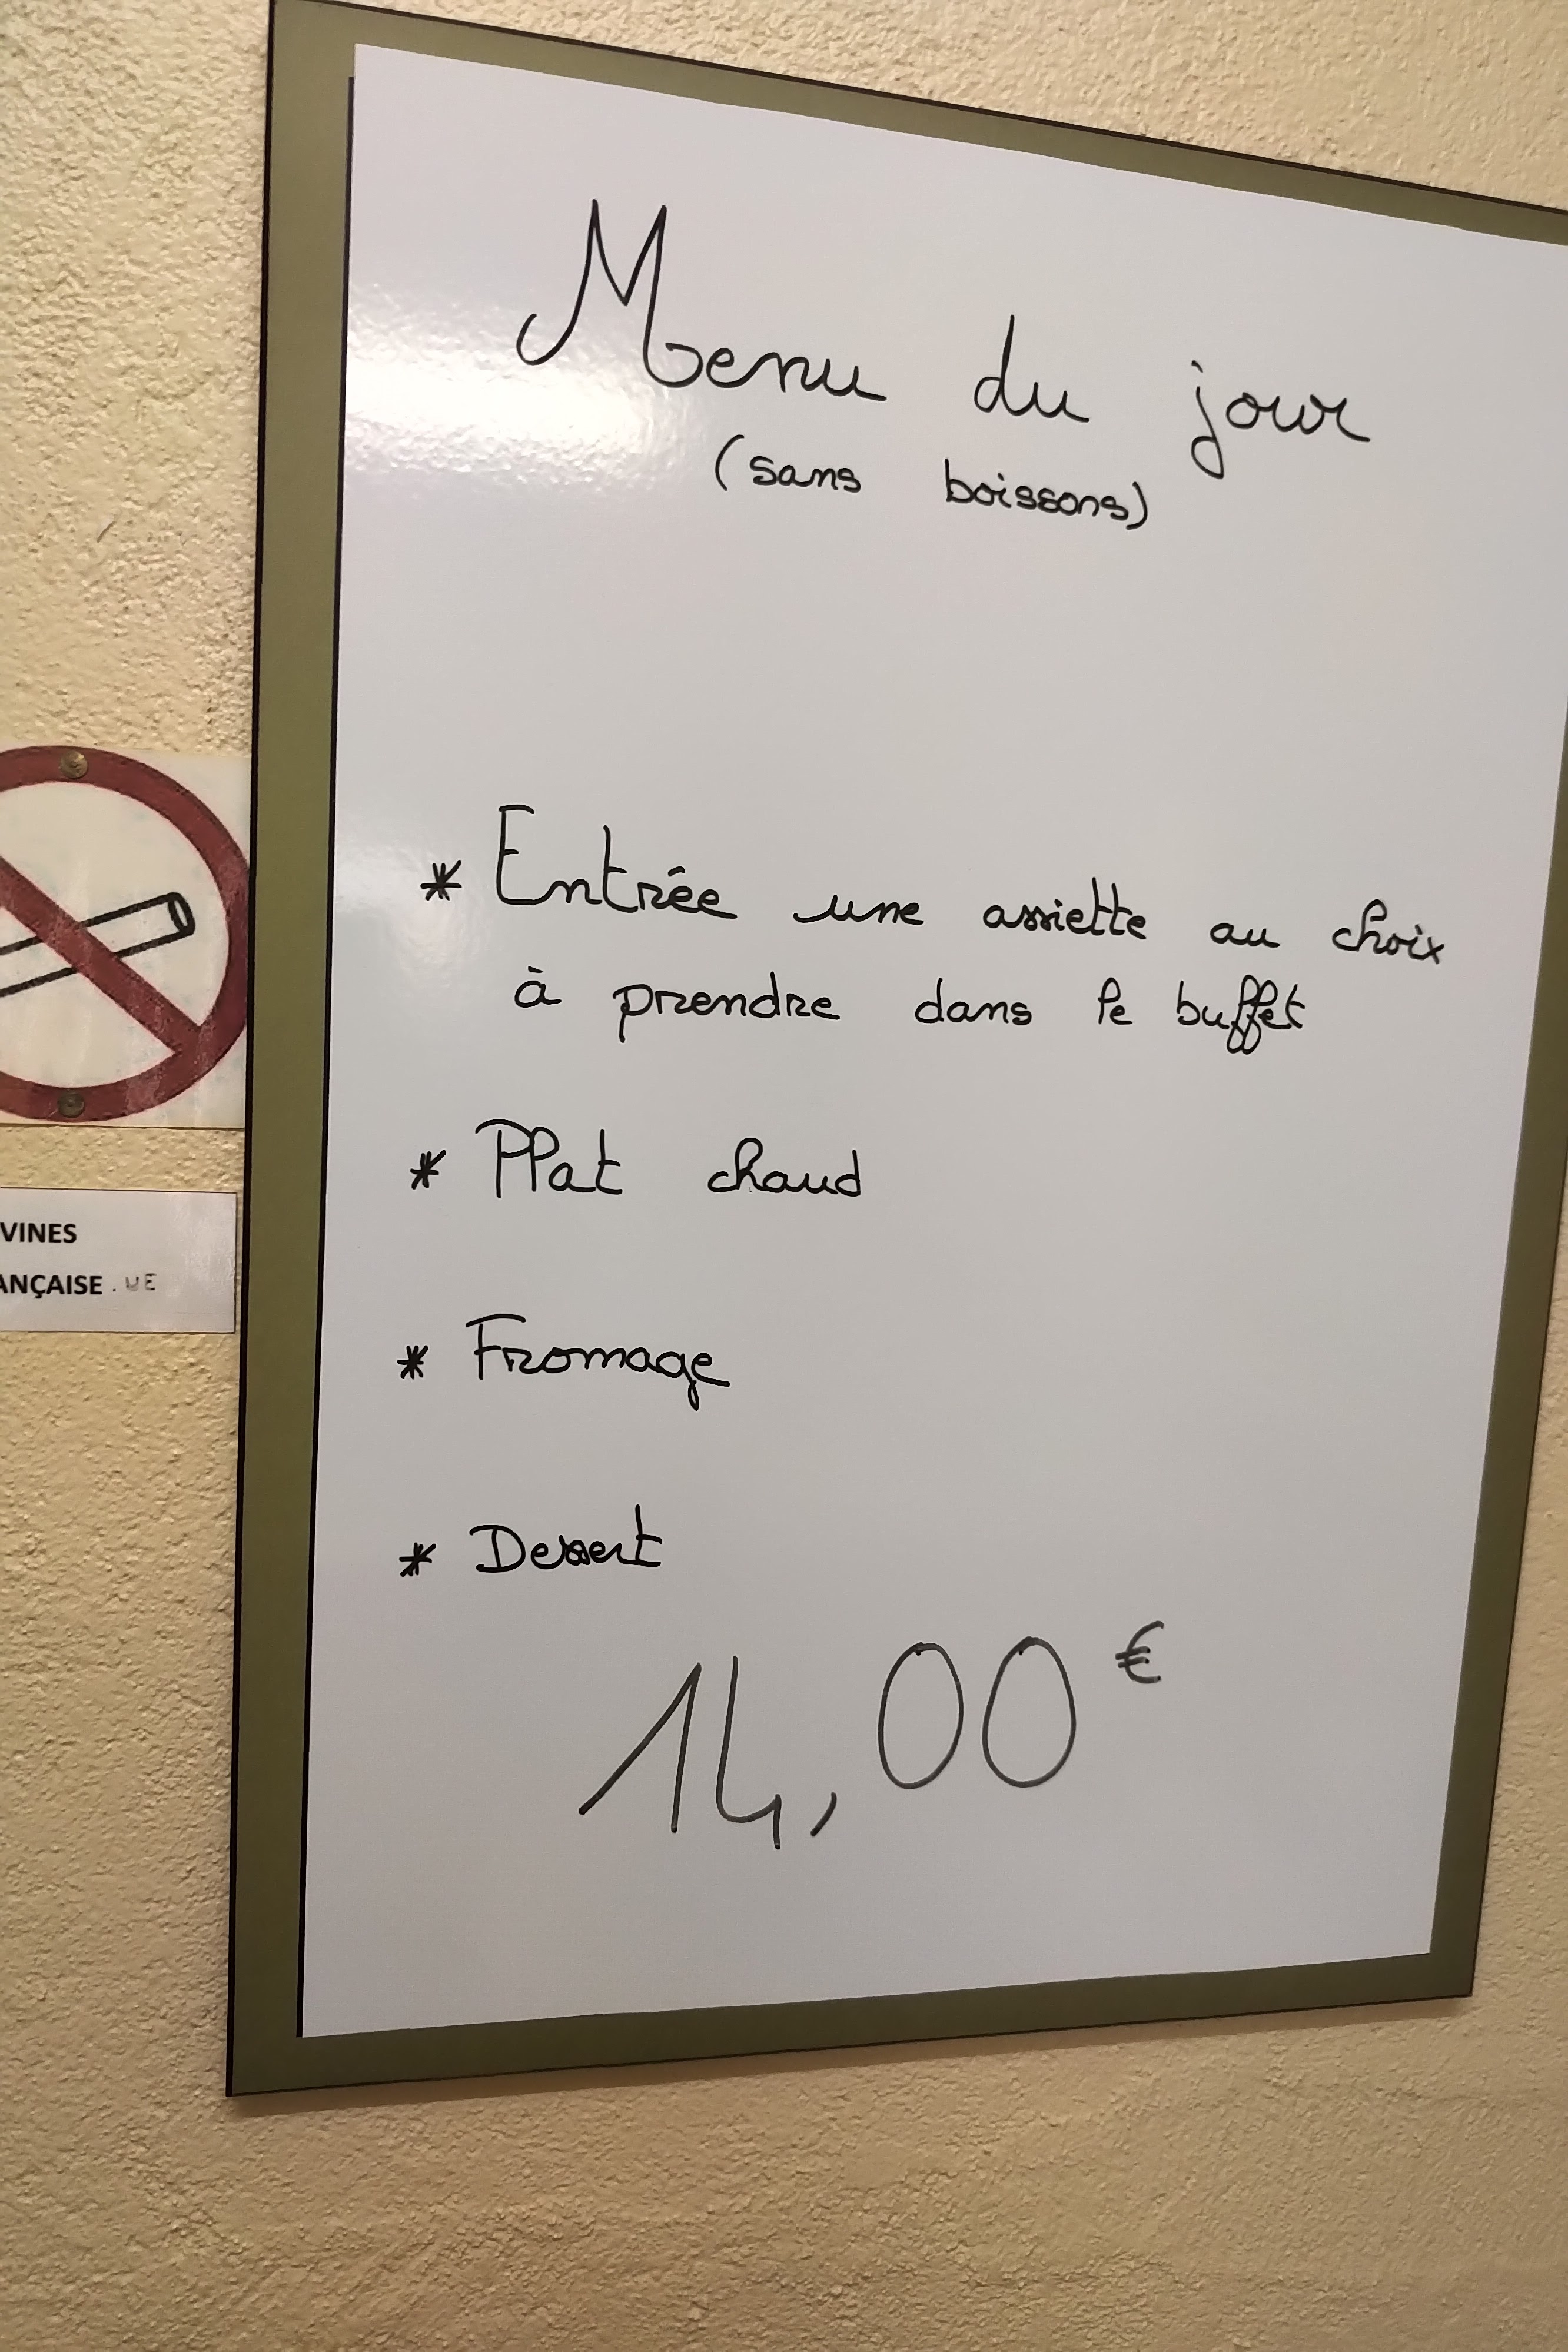 Menu du jour
(sans boissons)
* Entrée une assiette au choix
à prendre dans le buffet
* Plat chaud
* Fromage
* Dessert
14,00 €
VINES
ANÇAISE . UE